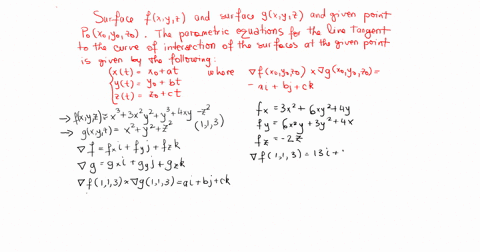 Surface f(x,y,z) and surface g(x,y,z) and given point
P₀(x₀,y₀,z₀). The parametric equations for the line tangent
to the curve of intersection of the surfaces at the given point
is given by the following:
{ x(t) = x₀+at where ∇f(x₀,y₀,z₀) × ∇g(x₀,y₀,z₀) =
y(t) = y₀+bt = ai + bj + ck
z(t) = z₀+ct
→ f(x,y,z) = x³+3x²y²+y³+4xy-z²
→ g(x,y,z) = x²+y²+z² (1,1,3)
∇f = fxi + fyj + fzk
∇g = gxi + gyj + gzk
∇f(1,1,3) × ∇g(1,1,3) = ai+bj+ck
fx = 3x² + 6xy² + 4y
fy = 6x²y + 3y² + 4x
fz = -2z
∇f(1,1,3) = 13i +